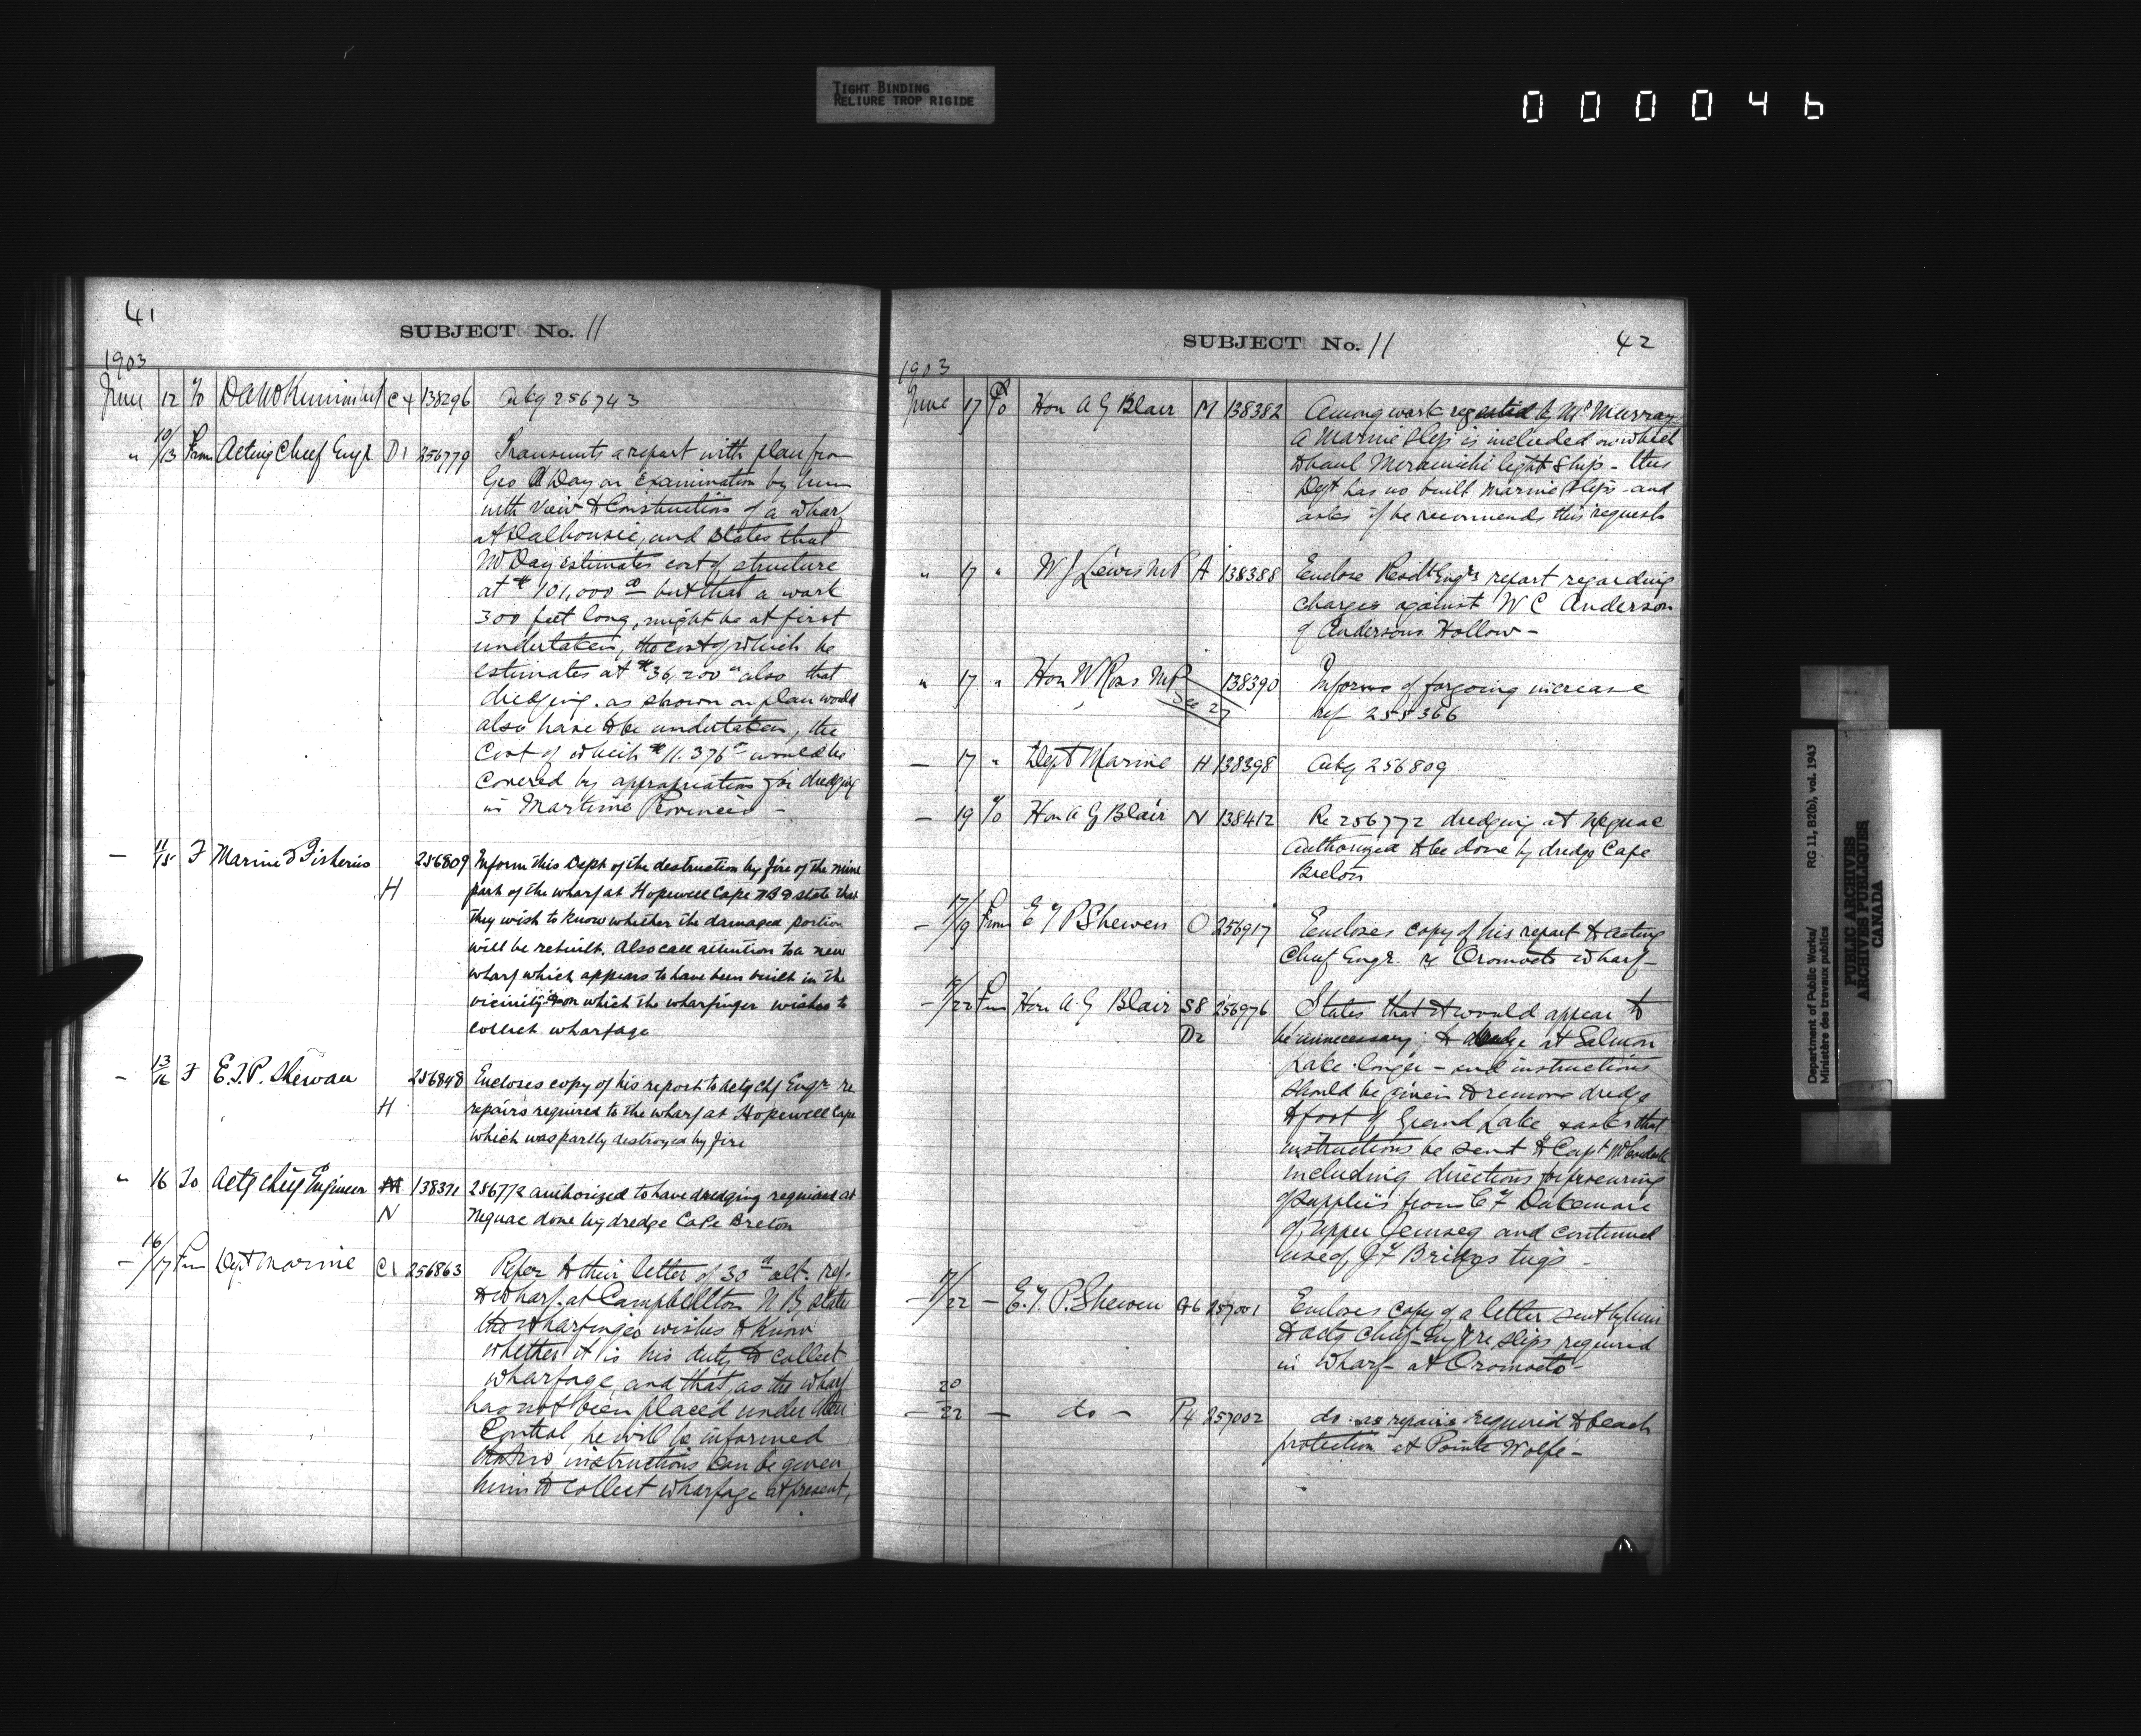 TIGHT BINDING
RELIURE TROP RIGIDE
000046
41
SUBJECT No. 11
1903
June 12 To C4 138296 ackg 256743
" 10/13 From Acting Chief Engr D1 256779 Transmits a report with plan from
Geo Day on Examination by him
with view to Construction of a wharf
at Dalhousie, and states that
Mr Day estimates cost of structure
at $101,000 00 but that a work
300 feet long, might be at first
undertaken, the cost of which he
estimates at $36,200 00 also that
dredging as shown on plan would
also have to be undertaken, the
cost of which $11.376 00 would be
covered by appropriation for dredging
in Maritime Provinces -
— 11/15 F Marine & Fisheries H 256809 Inform this Dept of the destruction by fire of the
part of the wharf at Hopewell Cape NB & state that
they wish to know whether the damaged portion
will be rebuilt. Also call attention to a new
wharf which appears to have been built in the
vicinity & on which the wharfinger wishes to
collect wharfage
— 13/16 F E.T.P. Shewan H 256848 Encloses copy of his report to actg chf Engr re
repairs required to the wharf at Hopewell Cape
which was partly destroyed by fire
" 16 To Actg Chief Engineer N 138371 256772 authorized to have dredging required at
Neguac done by dredge Cape Breton
— 16/17 From Dept Marine C1 256863 Refer to their letter of 30th ult. ref.
to wharf at Campbellton N B state
the wharfinger wishes to know
whether it is his duty to collect
wharfage, and that, as the wharf
has not been placed under their
Control, he will be informed
that no instructions can be given
him to collect wharfage at present,
SUBJECT No. 11
42
1903
June 17 To Hon A G Blair M 138382 Among work requested by Mr Murray
a Marine Slip is included on which
to haul Meramichi light ship - this
Dept has no built marine slips - and
asks if he recommends this request
" 17 " W J Lewis MP A 138388 Enclose Resdt Engrs report regarding
charges against W C Anderson
of Andersons Hollow -
" 17 " Hon W Ross MP See 27 138390 Informs of forgoing increase
ref 255366
— 17 " Dept Marine H 138398 Ackg 256809
— 19 To Hon A G Blair N 138412 Re 256772 dredging at Neguac
Authorized to be done by dredge Cape
Breton
— 17/19 From E T P Shewen O 256917 Encloses copy of his report to acting
Chief Engr. re Oromocto wharf -
— /22 From Hon A G Blair S8 D2 256976 States that it would appear to
be unnecessary to dredge at Salmon
Lake longer - and instructions
should be given to remove dredge
to foot of Grand Lake, & asks that
instructions be sent to Capt
including directions for procuring
of supplies from C F Dakemare
of upper Jemseg and continued
use of J F Bridges tugs -
— 17/22 — E. T. P. Shewen 257001 Encloses copy of a letter sent by him
to actg Chief Engr re slips required
in Wharf - at Oromocto -
— 20/22 — do - P4 257002 do re repairs required to beach
protection at Pointe Wolfe -
Department of Public Works/ RG 11, B2(b), vol. 1943
Ministère des travaux publics
PUBLIC ARCHIVES
ARCHIVES PUBLIQUES
CANADA